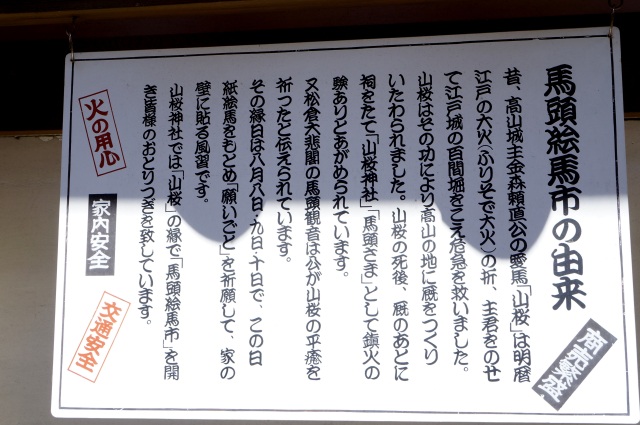 馬頭絵馬市の由来
昔、高山城主金森頼直公の愛馬「山桜」は明暦
江戸の大火(ふりそで大火)の折、主君をのせ
て江戸城の百間堀をこえ危急を救いました。
山桜はその功により高山の地に厩をつくり
いたわられました。山桜の死後、厩のあとに
祠をたて「山桜神社」「馬頭さま」として鎮火の
験ありとあがめられています。
又松倉大悲閣の馬頭観音は公が山桜の平癒を
祈ったと伝えられています。
その縁日は八月八日・九日・十日で、この日
紙絵馬をもとめ「願いごと」を祈願して、家の
壁に貼る風習です。
山桜神社では「山桜」の縁で「馬頭絵馬市」を開
き皆様のおとりつぎを致しています。
商売繁盛
火の用心
家内安全
交通安全